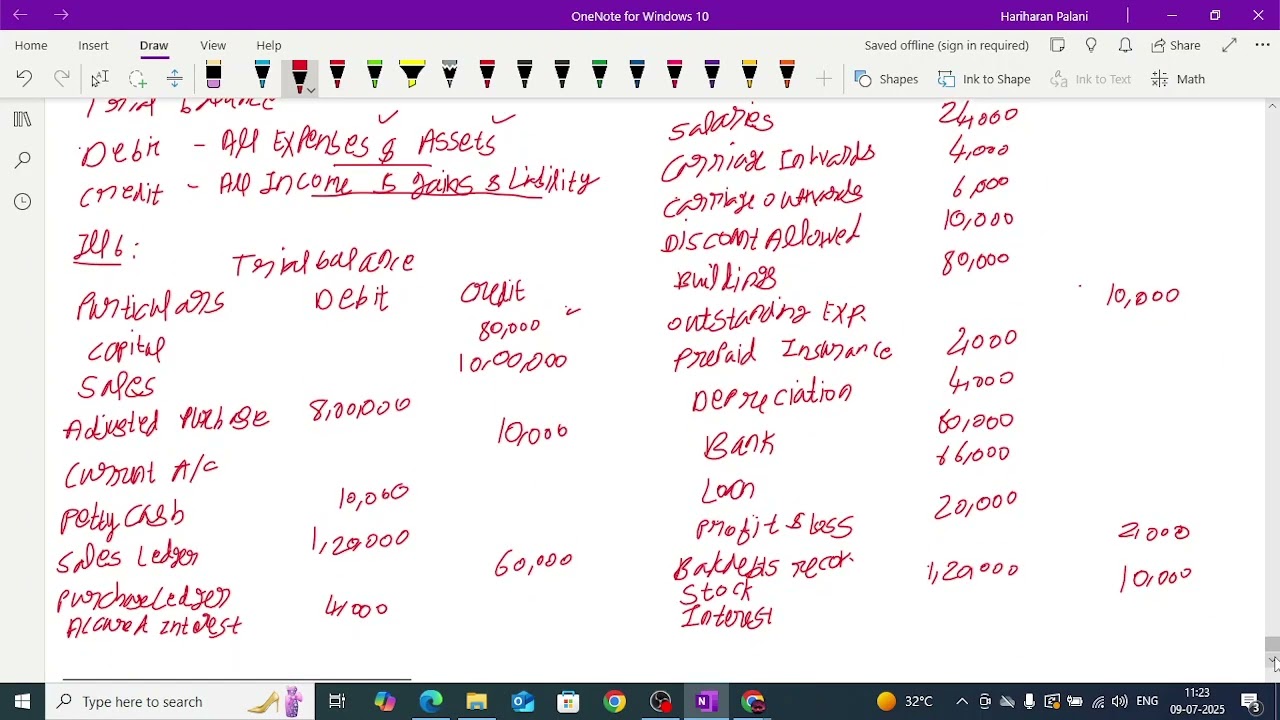 OneNote for Windows 10
Hariharan Palani
Home Insert Draw View Help
Saved offline (sign in required)
Share
Shapes
Ink to Shape
Ink to Text
Math
Trial balance
Debit - All Expenses & Assets
Credit - All Income & gains & Liability
Ill 6:
Trial balance
Particulars Debit Credit
Capital 80,000
Sales 10,00,000
Adjusted Purchase 8,00,000
Current A/c 10,000
Petty Cash 10,000
Sales Ledger 1,20,000
Purchase Ledger 60,000
Accured Interest 4,000
Salaries 24,000
Carriage Inwards 4,000
Carriage outwards 6,000
Discount Allowed 10,000
Buildings 80,000
Outstanding Exp. 10,000
Prepaid Insurance 2,000
Depreciation 4,000
Bank 60,000
Loan 66,000
Profit & loss 20,000
Bad debts recov 2,000
Stock 1,20,000
Interest 10,000
Type here to search
32°C
ENG
11:23
09-07-2025
3